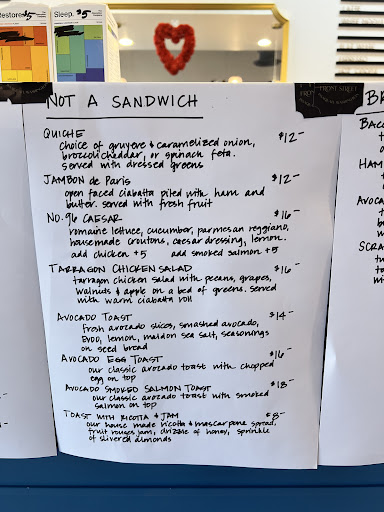 Restore. $5
Sleep. $5
NOT A SANDWICH
QUICHE $12-
choice of gruyere & caramelized onion,
broccoli cheddar, or spinach feta.
served with dressed greens
JAMBON de Paris $12-
open faced ciabatta piled with ham and
butter. served with fresh fruit
NO. 96 CAESAR $16-
romaine lettuce, cucumber, parmesan reggiano,
housemade croutons, caesar dressing, lemon.
add chicken +5 add smoked salmon +5
TARRAGON CHICKEN SALAD $16-
tarragon chicken salad with pecans, grapes,
walnuts & apple on a bed of greens. served
with warm ciabatta roll
AVOCADO TOAST $14-
fresh avocado slices, smashed avocado,
Evoo, lemon, maldon sea salt, seasonings
on seed bread
AVOCADO EGG TOAST $16-
our classic avocado toast with chopped
egg on top
AVOCADO SMOKED SALMON TOAST $18-
our classic avocado toast with smoked
salmon on top
TOAST WITH RICOTTA & JAM $8-
our house made ricotta & mascarpone spread,
fruit rouges jam, drizzle of honey, sprinkle
of slivered almonds
FRONT STREET
BR
BACO
HAM
AVOCA
SCRA